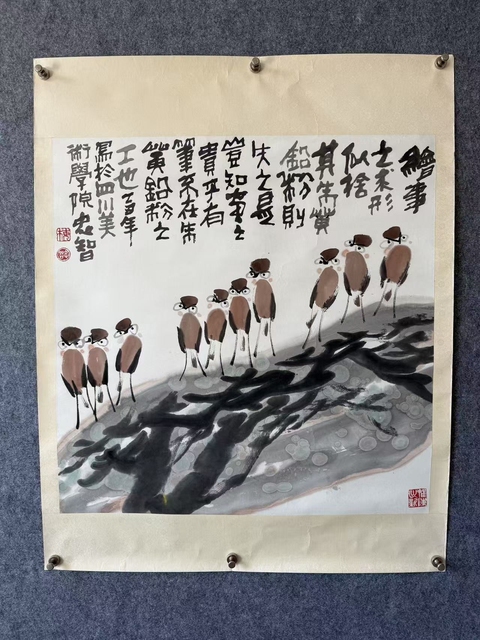 繪事
之求形
似捨
其朱黃
鉛粉則
失之是
豈知畫之
貴乎有
筆不在朱
黃鉛粉之
工也年
寫於四川美
術學院忠智